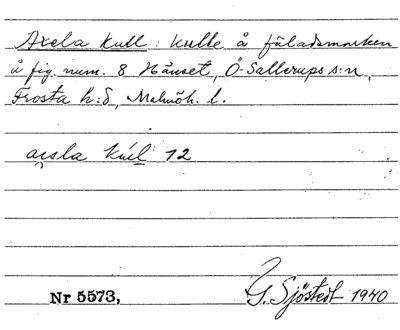 Axela kull: kulle å fäladsmarken
å fig. num. 8 Hänset, Ö-Sallerups s:n,
Frosta h:d, Malmöh. l.
acsla kul 12
Nr 5573,
G. Sjöstedt 1940